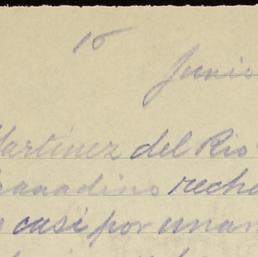 15
Junio
Martínez del Rio
Granadino recha
casi por unan